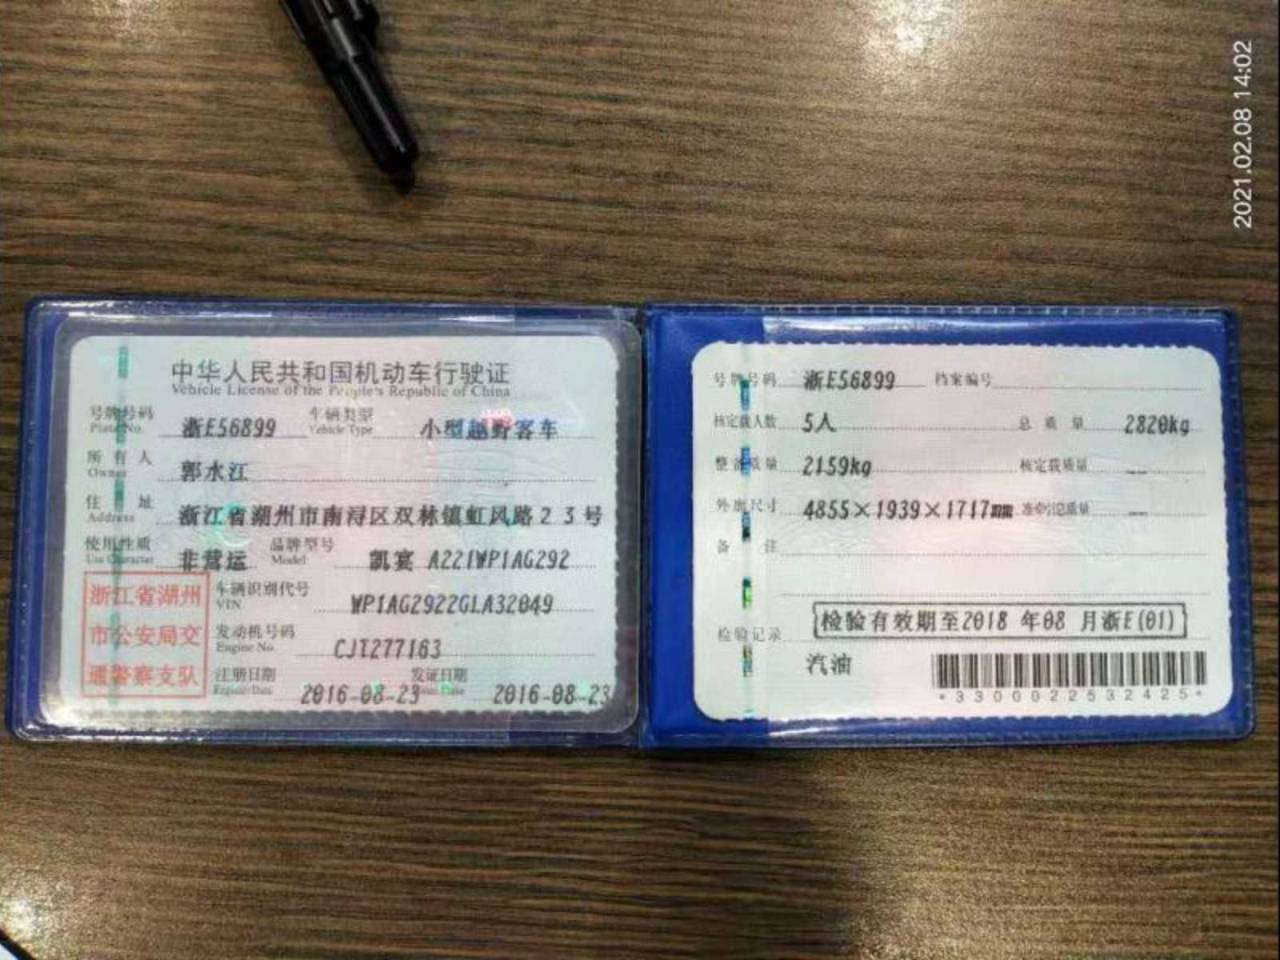 2021.02.08 14:02
中华人民共和国机动车行驶证
Vehicle License of the People's Republic of China
号牌号码 浙E56899 车辆类型 小型越野客车
Plate No. Vehicle Type
所有人 郭水江
Owner
住址 浙江省湖州市南浔区双林镇虹凤路23号
Address
使用性质 非营运 品牌型号 凯宴 A221WP1AG292
Use Character Model
浙江省湖州
市公安局交
通警察支队
车辆识别代号 WP1AG2922GLA32049
VIN
发动机号码 CJT277163
Engine No.
注册日期 2016-08-23 发证日期 2016-08-23
Register Date Issue Date
号牌号码 浙E56899 档案编号
核定载人数 5人 总质量 2820kg
整备质量 2159kg 核定载质量 --
外廓尺寸 4855×1939×1717mm 准牵引总质量 --
备注
检验记录 检验有效期至2018 年08 月浙E(01)
汽油
*3300022532425*